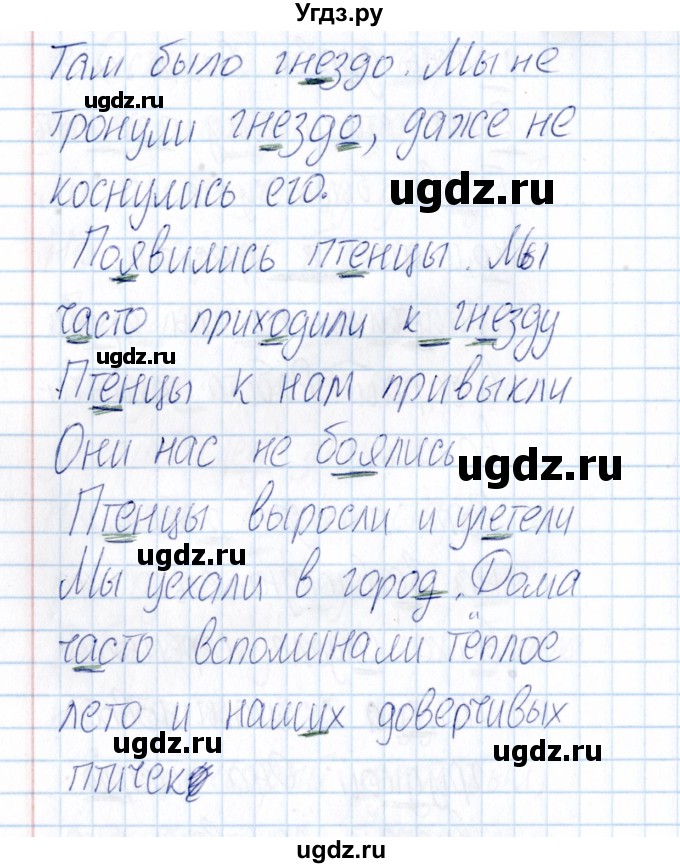 Угдз.ру
Там было гнездо. Мы не
тронули гнездо, даже не
коснулись его.
Появились птенцы. Мы
часто приходили к гнезду
Птенцы к нам привыкли
Они нас не боялись
Птенцы выросли и улетели
Мы уехали в город. Дома
часто вспоминали тёплое
лето и наших доверчивых
птичек
ugdz.ru
ugdz.ru
ugdz.ru
ugdz.ru
ugdz.ru
ugdz.ru
ugdz.ru
ugdz.ru
ugdz.ru